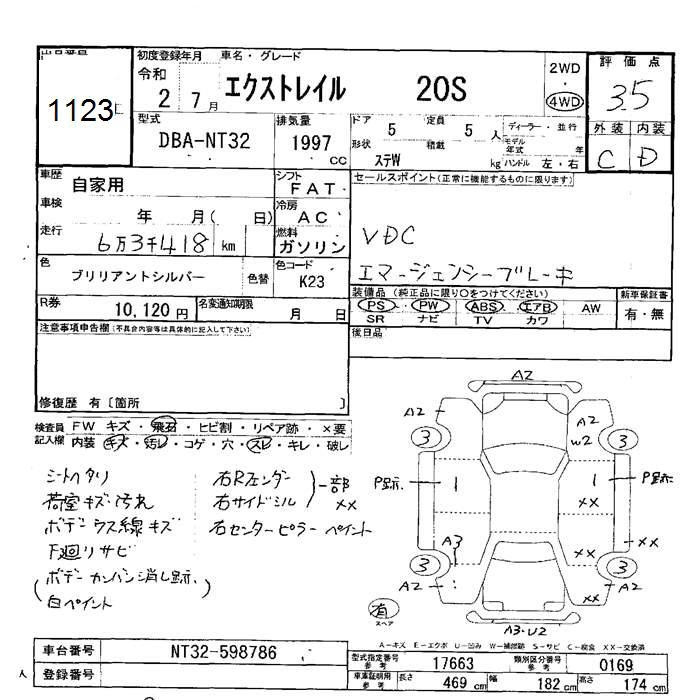 出品番号
1123
初度登録年月
車名・グレード
令和 2年 7月
エクストレイル 20S
2WD
・
4WD
評価点
3.5
外装 内装
C D
型式
DBA-NT32
排気量
1997 CC
ドア 5
定員 5 人
形状 ステW
積載 kg
ディーラー・並行
モデル年式 年
ハンドル 左・右
車歴 自家用
シフト FAT
セールスポイント(正常に機能するものに限ります)
車検 年 月( 日)
冷房 AC
走行 6万3千418 km
燃料 ガソリン
VDC
エマージェンシーブレーキ
色 ブリリアントシルバー 色替
色コード K23
R券 10,120円
名変通知期限 月 日
装備品(純正品に限り○をつけてください)
PS PW ABS エアB AW
SR ナビ TV カワ
新車保証書
有・無
注意事項申告欄(不具合内容等は具体的に記入して下さい)
後日品
修復歴 有〔箇所 〕
検査員記入欄
FW キズ・飛石・ヒビ割・リペア跡・×要
内装 キズ・汚レ・コゲ・穴・スレ・キレ・破レ
シートヘタリ
荷室キズ・汚れ
ボデーウス線キズ
下廻リサビ
(ボデーカンバン消し跡、
白ペイント
右Rフェンダー
右サイドシル
)一部××
右センターピラーペイント
A2
A2
A2
W2
3
3
P跡.
1
1
P跡.
××
A3
××
××
3
3
A2
××
A2
有
スペア
A3・U2
A-キズ E-エクボ U-凹み W-補修跡 S-サビ C-腐食 XX-交換済
車台番号 NT32-598786
型式指定番号 参考 17663
類別区分番号 参考 0169
登録番号
車庫証明用 参考 長さ 469 cm 幅 182 cm 高さ 174 cm
人